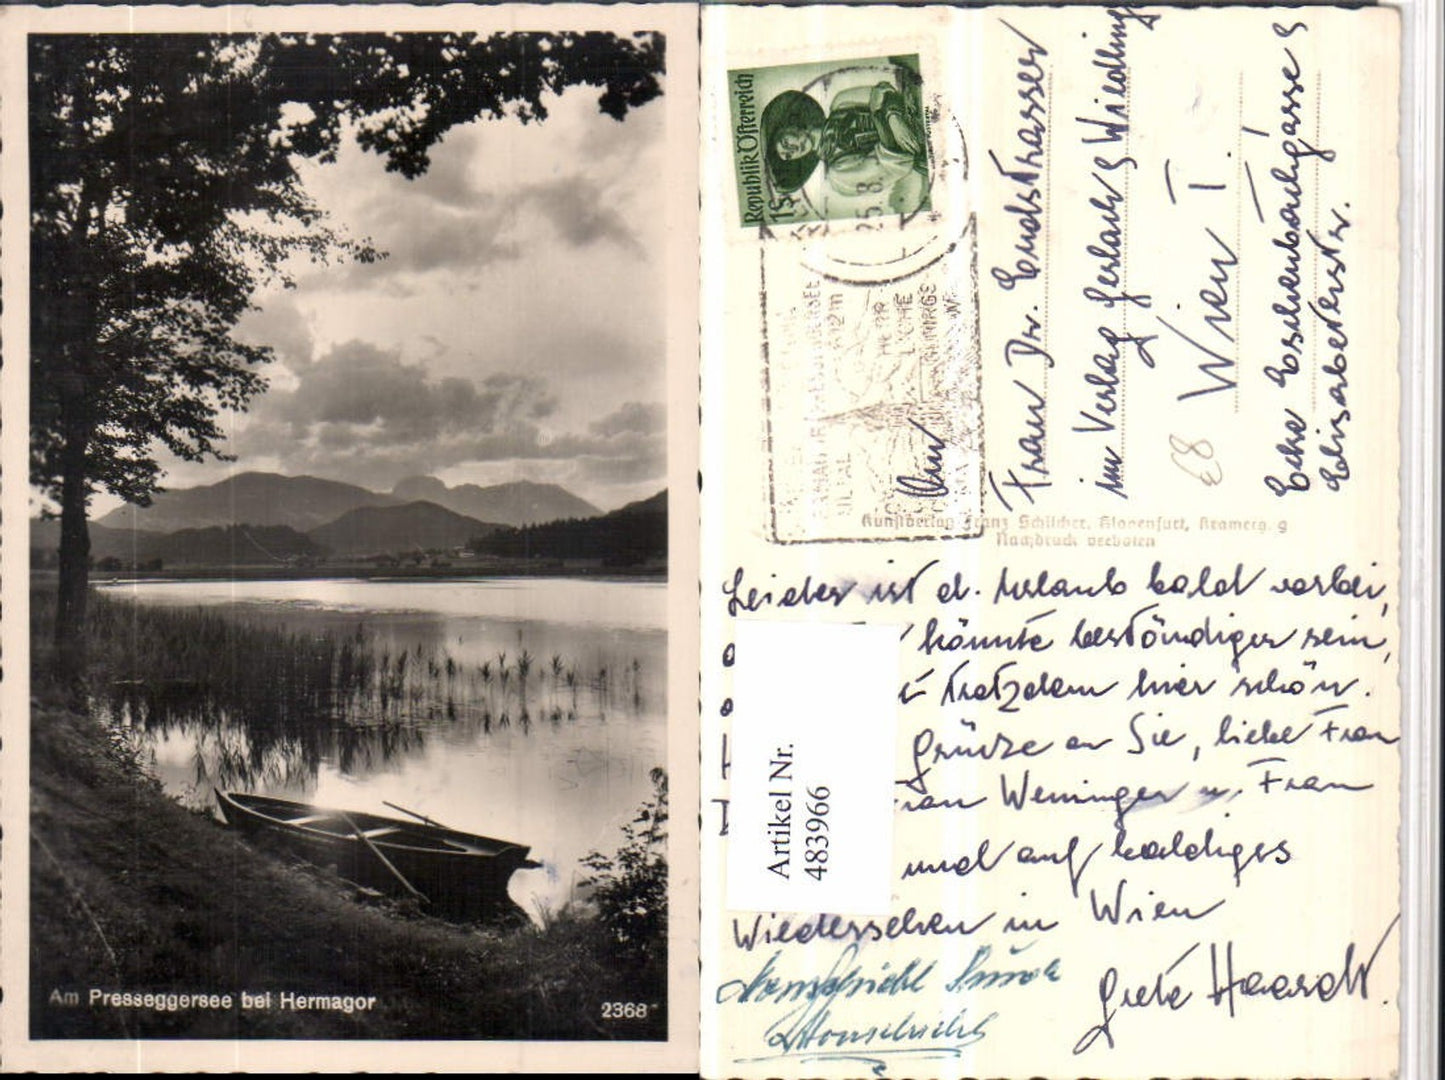 Am Presseggersee bei Hermagor
2368
Republik Österreich
1S
25.8.
HERR
LICHE
An
Frau Dr. Ernst Strasser
im Verlag Gerlach & Wiedling
Wien I.
Ecke Eschenbachgasse &
Elisabethstr.
Kunstverlag Franz Schilcher, Klagenfurt, Kramerg. 9
Nachdruck verboten
Leider ist d. Urlaub bald vorbei,
könnte beständiger sein,
trotzdem hier schön.
Grüsse an Sie, liebe Frau
Frau Weninger u. Frau
und auf baldiges
Wiedersehen in Wien
Grete Haardt.
Artikel Nr.
483966